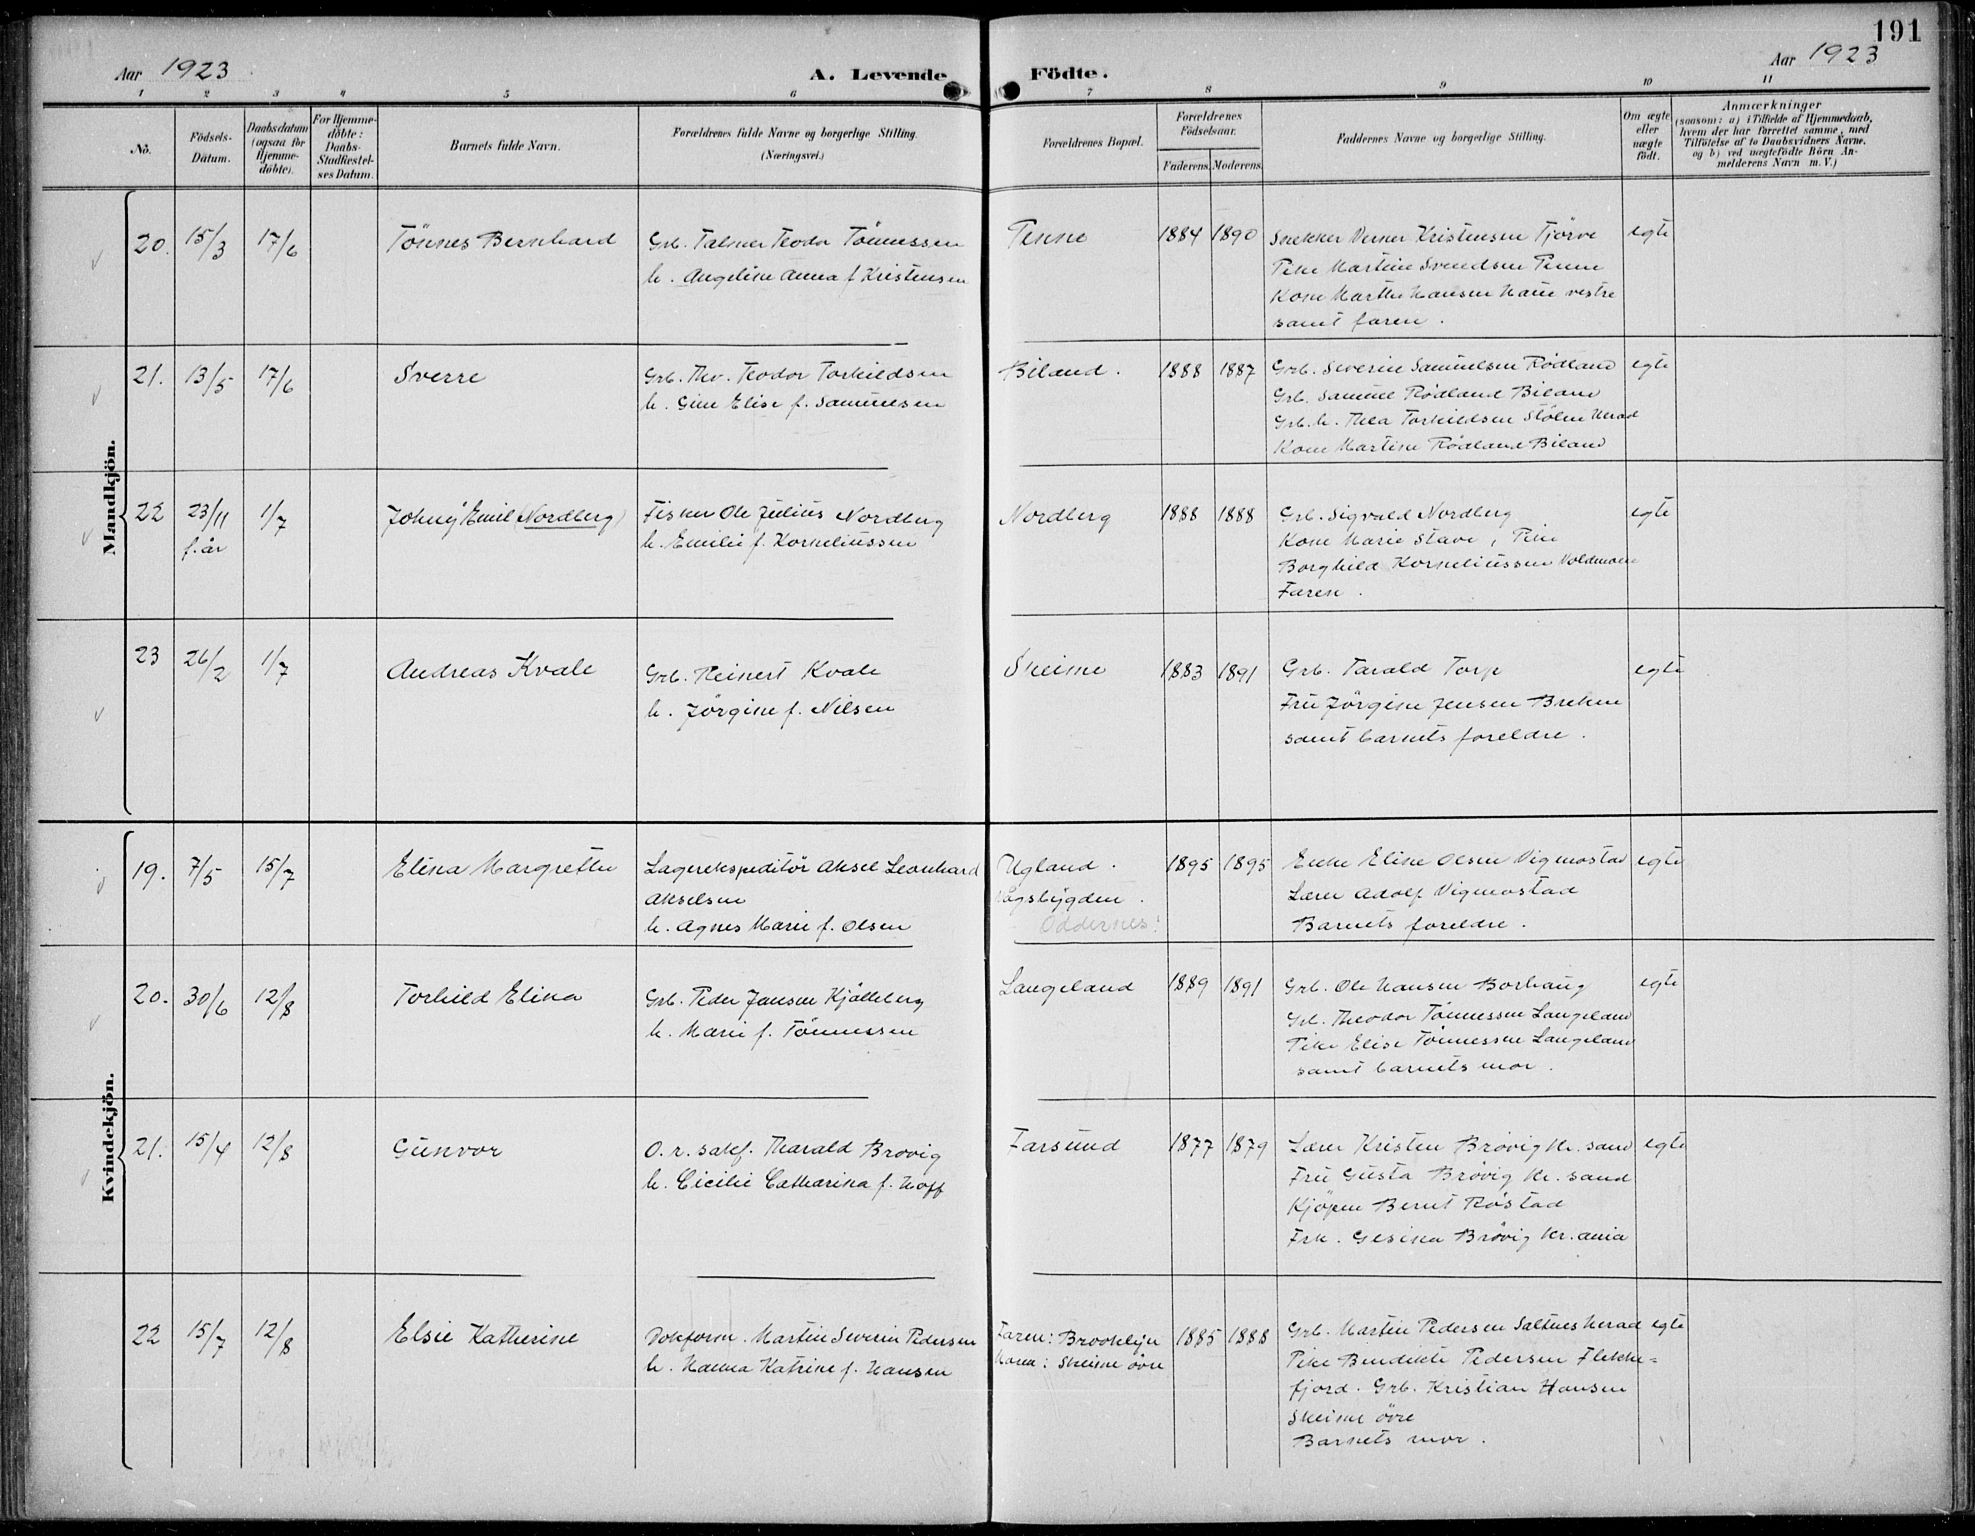 191
Aar 1923 A. Levende Födte. Aar 1923
1 2 3 4 5 6 7 8 9 10 11
No.
Födsels-Datum.
Daabsdatum (ogsaa for Hjemme-döbte).
For Hjemme-döbte: Daabs-Stadfæstel-ses Datum.
Barnets fulde Navn.
Forældrenes fulde Navne og borgerlige Stilling. (Næringsvei.)
Forældrenes Bopæl.
Forældrenes Födselsaar.
Faderens. Moderens.
Faddernes Navne og borgerlige Stilling.
Om ægte eller uægte födt.
Anmærkninger
(saasom: a) i Tilfælde af Hjemmedaab, hvem der har forrettet samme, med Tilföielse af to Daabsvidners Navne, og b) ved uægtefödte Börn An-melderens Navn m. V.)
Mandkjön.
20. 15/3 17/6 Tönnes Bernhard Grb. Talmer Teodor Tönnessen Penne 1884 1890 Snekker Verner Kristensen Tjörve egte
h. Angeline Anna f. Kristensen Pike Martine Svendsen Penne
Kone Marthe Hansen Haue vestre
samt faren.
21. 13/5 17/6 Sverre Grb. Thv. Teodor Torkildsen Biland. 1888 1887 Grb. Severin Samuelsen Rödland egte
h. Gine Elise f. Samuelsen Grb. Samuel Rödland Biland
Grb. h. Thea Torkildsen Stölen Herad
Kone Martine Rödland Biland
22 23/11 1/7 Johny Emil (Nordberg) Fisker Ole Julius Nordberg Nordberg 1888 1888 Grb. Sigvald Nordberg egte
f. år h. Emilie f. Korneliussen Kone Marie Stave, Pike
Borghild Korneliussen
Faren.
23 26/2 1/7 Andreas Kvale Grb. Reinert Kvale Skeime 1883 1891 Grb. Tarald Torp egte
h. Jörgine f. Nilsen Fru Jörgine Jensen Brekne
samt barnets foreldre.
Kvindekjön.
19. 7/5 15/7 Elina Margrethe Lagerekspeditör Aksel Leonhard Ugland. 1895 1895 Enke Eline Olsen Vigmostad egte
Akselsen Vågsbygden. Lærer Adolf Vigmostad
h. Agnes Marie f. Olsen Oddernes! Barnets foreldre.
20. 30/6 12/8 Torhild Elina Grb. Peder Jansen Kjölleberg Langeland 1889 1891 Grb. Ole Hansen Borhaug egte
h. Marie f. Tönnessen Grb. Theodor Tönnessen Langeland
Pike Elise Tönnessen Langeland
samt barnets mor.
21. 15/4 12/8 Gunvor O. r. sakf. Tharald Brövig Farsund 1877 1879 Lærer Kristen Brövig Kr. sand egte
h. Cicilie Catharina f. Hoff Fru Gusta Brövig Kr. sand
Kjöpm Bernt Röstad
Frk. Gesina Brövig Kr. ania
22 15/7 12/8 Elsie Katherine Dokform. Martin Severin Pedersen Faren: Brooklyn 1885 1888 Grb. Martin Pedersen Saltnes Herad egte
h. Hanna Katrine f. Hansen Moren: Skeime övre Pike Bendikte Pedersen Flekke=
fjord. Grb. Kristian Hansen
Skeime övre
Barnets mor.